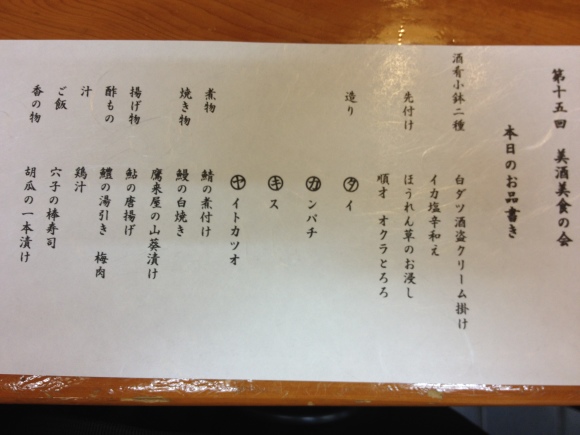 第十五回　美酒美食の会
本日のお品書き
酒肴小鉢二種　白ダツ酒盗クリーム掛け
イカ塩辛和え
先付け　ほうれん草のお浸し
順才　オクラとろろ
造り　㋟イ
㋕ンパチ
㋖ス
㋳イトカツオ
煮物　鯖の煮付け
焼き物　鰻の白焼き
鷹来屋の山葵漬け
揚げ物　鮎の唐揚げ
酢もの　鱧の湯引き　梅肉
汁　鶏汁
ご飯　穴子の棒寿司
香の物　胡瓜の一本漬け